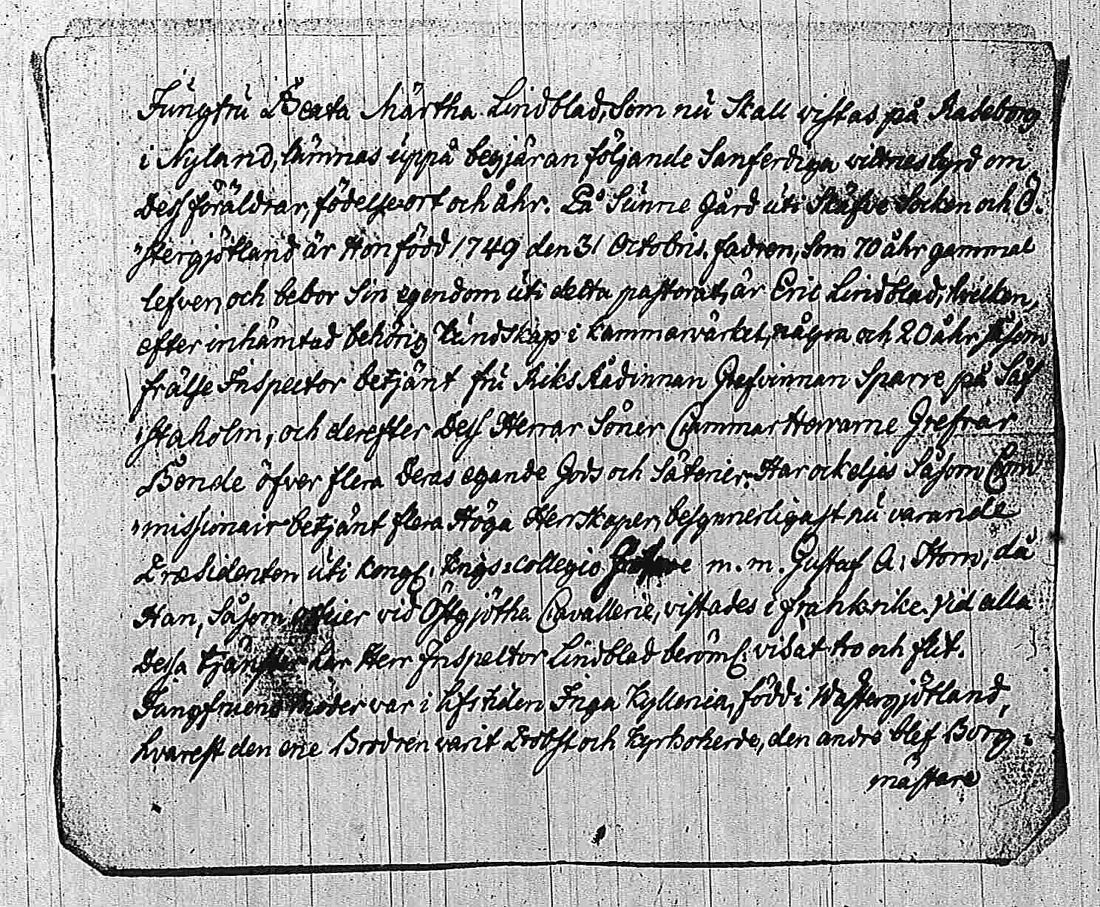 Jungfru Beata Märtha Lindblad, som nu skall vistas på Raseborg
i Nyland, lämnas uppå begjäran följande sanferdiga vittnesbyrd om
dess föräldrar, födelseort och åhr. På Sunne gård uti Skäfve Socken och Ö.
stergjötland är Hon född 1749 den 31 Octobris. fadren, som 70 åhr gammal
lefver, och bebor sin egendom uti detta pastorat, är Eric Lindblad, hvilken,
efter inhämtad behörig kundskap i kammarvärket, några och 20 åhr såsom
frälse Inspector betjänt fru Riks Rådinnan Grefvinnan Sparre på Säf
staholm, och derefter dess Herrar Söner Cammar Herrarne Grefvar
Bonde öfver flera deras egande Gods och Säterier. Har ock eljes såsom Com
missionair betjänt flera Höga Herrskaper, besynnerligast nu varande
Præsidenten uti Kongl. Krigs: collegio m. m. Gustaf A: Horn, då
Han, såsom vid Östgjötha Cavallerie, vistades i frankrike. Vid alla
dessa tjänster har Herr Inspector Lindblad beröml. visat tro och flit.
Jungfruens Moder var i lifstiden Inga Kyllenia, född i Wästergjötland,
hvarest den ene Brodren varit Probst och Kyrkoherde, den andre blef Borg.
mästare